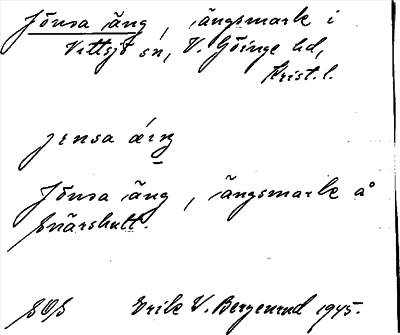 Jönsa äng, ängsmark i
Vittsjö sn, V. Göinge hd,
Krist. l.
jensa äng
Jönsa äng, ängsmark å
Snärshult.
SOS Erik V. Bergenrud 1945.